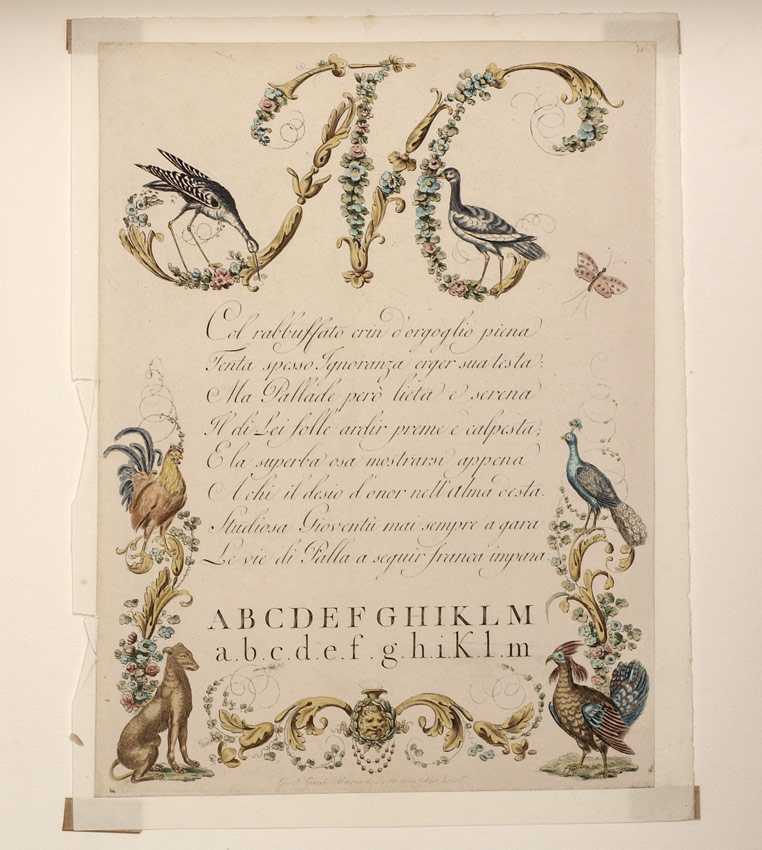 MC
Col rabbuffato crin d'orgoglio piena
Tenta spesso Ignoranza erger sua testa:
Ma Pallade però lieta e serena
Il di Lei folle ardir preme e calpesta;
E la superba osa mostrarsi appena
A chi il desio d'onor nell'Alma desta.
Studiosa Gioventù mai sempre a gara
Le vie di Palla a seguir franca impara
ABCDEFGHIKLM
a.b.c.d.e.f.g.h.i.K.l.m